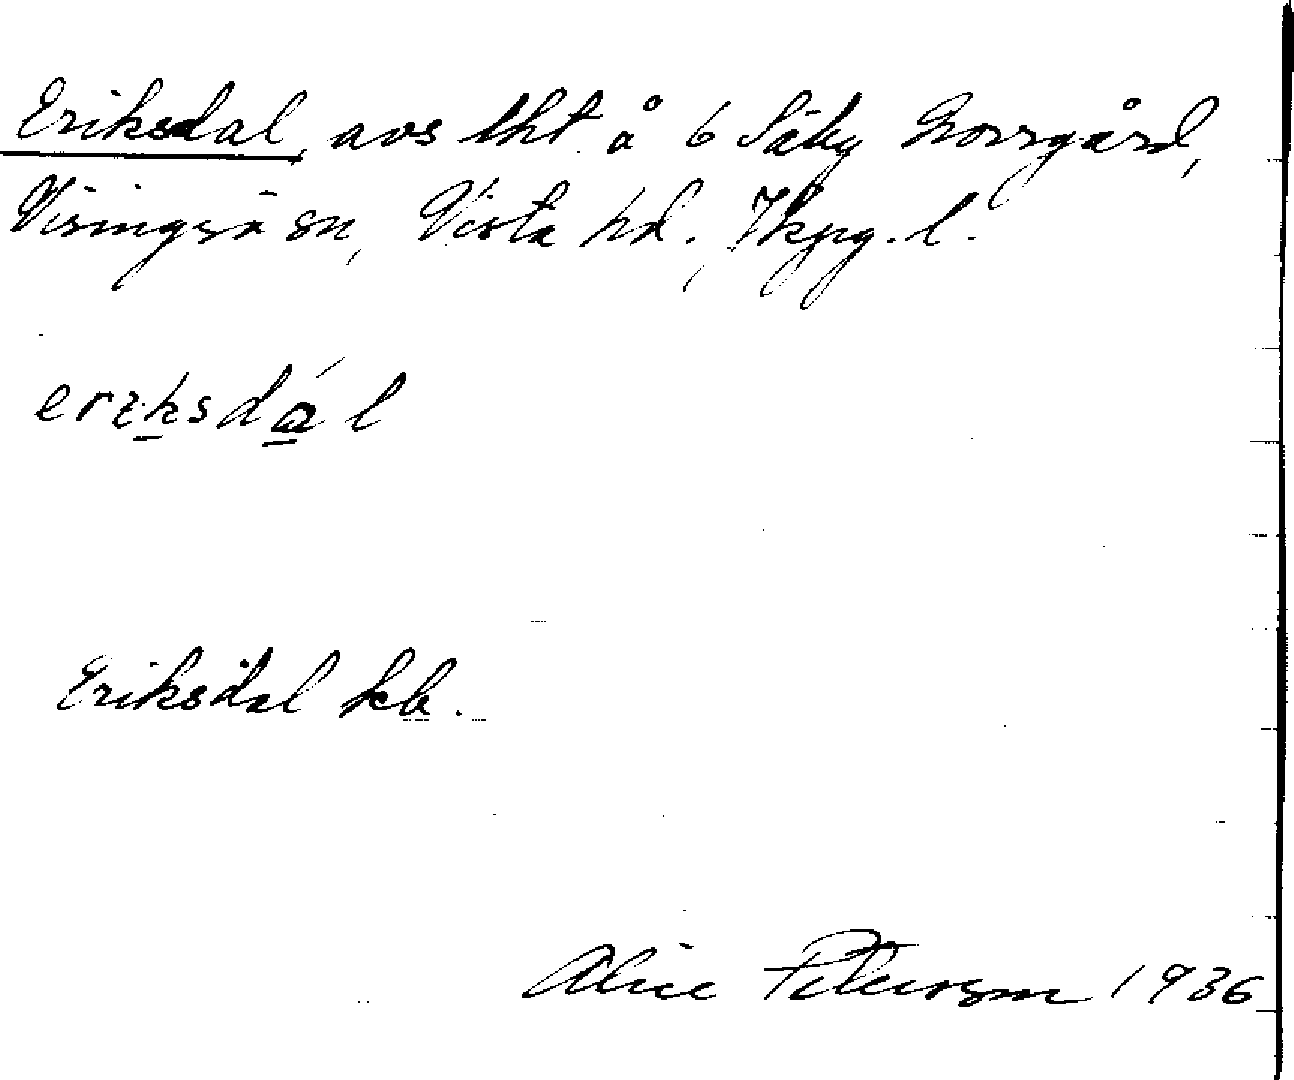 Eriksdal, avs lht. å 6 Säby Norrgård,
Visingsö sn, Vista hd., Jkpg. l.
eriksdál
Eriksdal kb.
Alice Peterson 1936